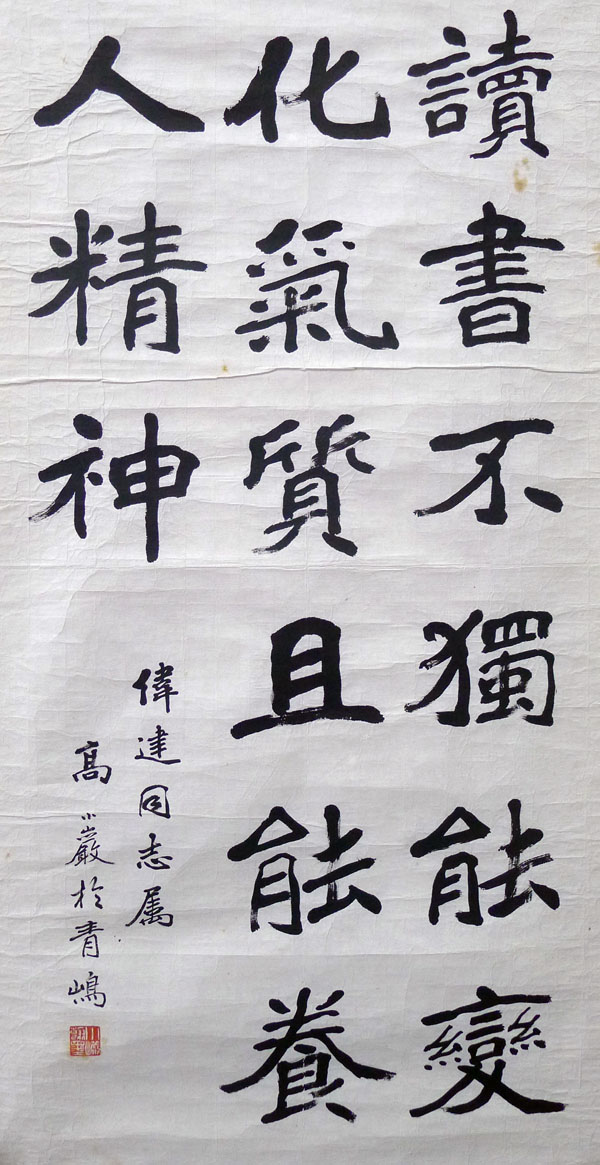 讀書不獨能變
化氣質且能養
人精神
偉建同志属
高小巖於青嶋